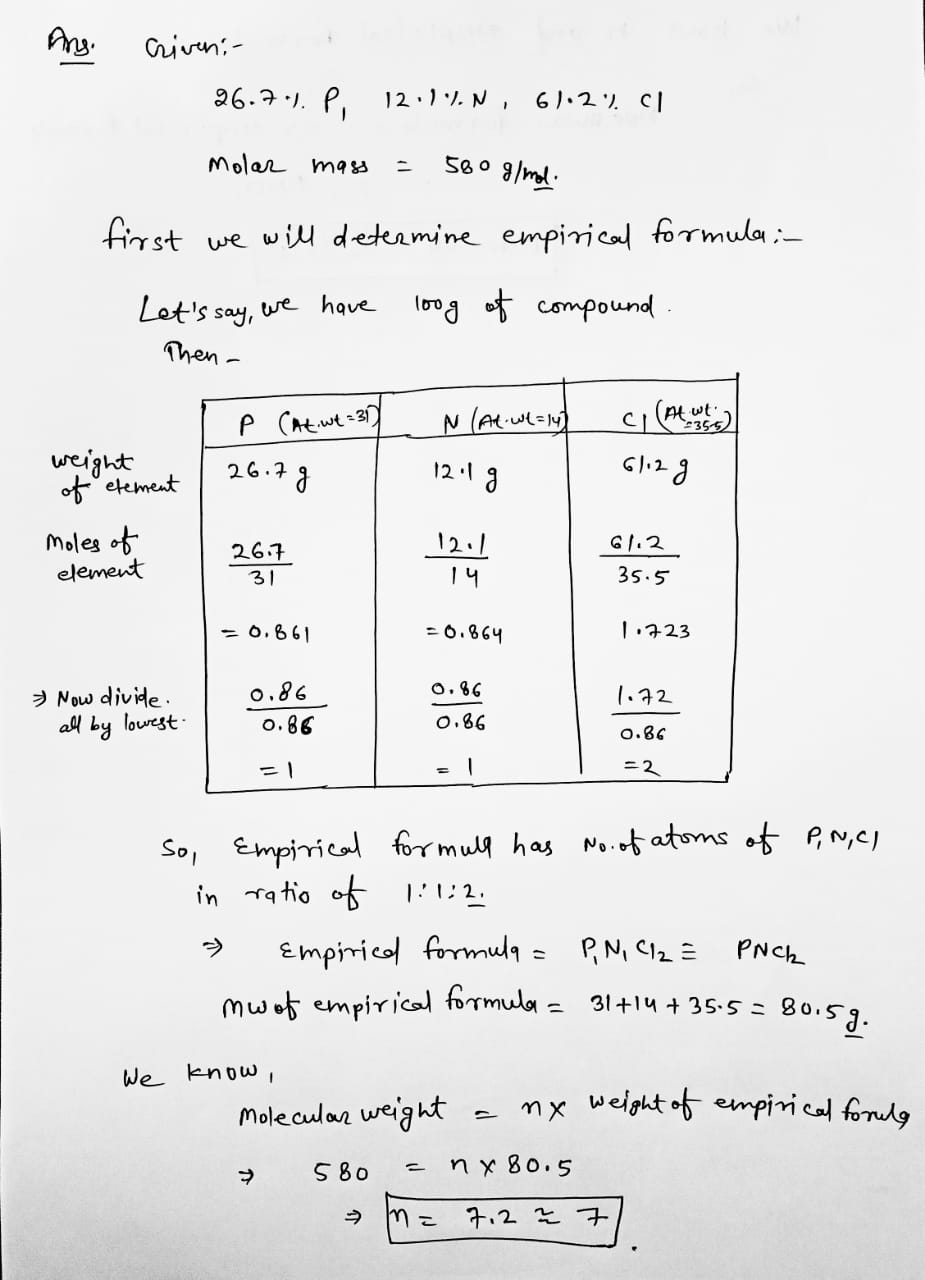 Ans. Given:-
26.7 %. P, 12.1 %. N, 61.2 %. Cl
Molar mass = 580 g/mol.
first we will determine empirical formula:-
Let's say, we have 100g of compound.
Then -
P (At.wt=31) N (At.wt=14) Cl (At.wt.=35.5)
weight of element 26.7 g 12.1 g 61.2 g
Moles of element 26.7/31 12.1/14 61.2/35.5
= 0.861 = 0.864 1.723
⇒ Now divide. all by lowest. 0.86/0.86 0.86/0.86 1.72/0.86
= 1 = 1 = 2
So, Empirical formula has No. of atoms of P, N, Cl
in ratio of 1:1:2.
⇒ Empirical formula = P₁N₁Cl₂ ≡ PNCl₂
MW of empirical formula = 31+14+35.5 = 80.5 g.
We know,
Molecular weight = n x weight of empirical formula
⇒ 580 = n x 80.5
⇒ n = 7.2 ≈ 7.